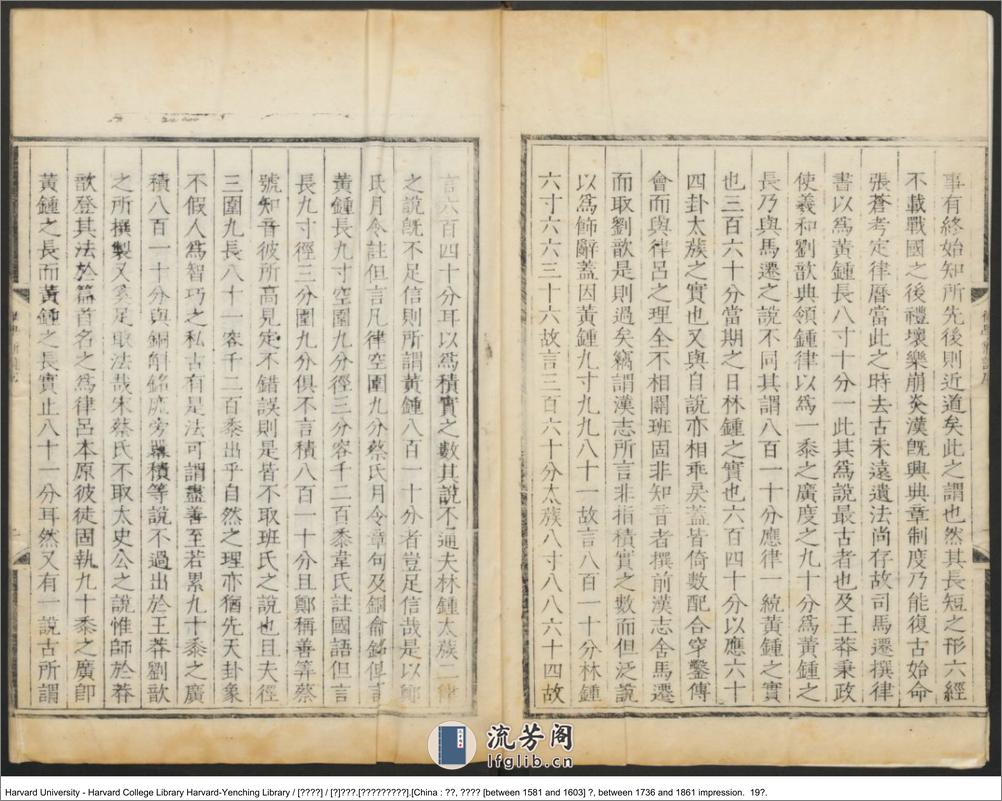 事有終始知所先後則近道矣此之謂也然其長短之形六經
不載戰國之後禮壞樂崩炎漢旣興典章制度乃能復古始命
張蒼考定律曆當此之時去古未遠遺法尚存故司馬遷撰律
書以爲黃鍾長八寸十分一此其爲說最古者也及王莽秉政
使羲和劉歆典領鍾律以爲一黍之廣度之九十分爲黃鍾之
長乃與馬遷之說不同其謂八百一十分應律一統黃鍾之實
也三百六十分當期之日林鍾之實也六百四十分以應六十
四卦太蔟之實也又與自說亦相乖戾蓋皆倚數配合穿鑿傅
會而與律呂之理全不相關班固非知音者撰前漢志舍馬遷
而取劉歆是則過矣竊謂漢志所言非指積實之數而但泛說
以爲飾辭蓋因黃鍾九寸九九八十一故言八百一十分林鍾
六寸六六三十六故言三百六十分太蔟八寸八八六十四故
言六百四十分耳以爲積實之數其說不通夫林鍾太蔟二律
之說旣不足信則所謂黃鍾八百一十分者豈足信哉是以鄭
氏月令註但言凡律空圍九分蔡氏月令章句及銅龠銘但言
黃鍾長九寸空圍九分徑三分容千二百黍韋氏註國語但言
長九寸徑三分圍九分俱不言積八百一十分且鄭稱善筭蔡
號知音彼所高見定不錯誤則是皆不取班氏之說也且夫徑
三圍九長八十一容千二百黍出乎自然之理亦猶先天卦象
不假人爲智巧之私古有是法可謂盡善至若累九十黍之廣
積八百一十分與銅斛銘庣旁冪積等說不過出於王莽劉歆
之所撰製又奚足取法哉宋蔡氏不取太史公之說惟師於莽
歆登其法於篇首名之爲律呂本原彼徒固執九十黍之廣卽
黃鍾之長而黃鍾之長實止八十一分耳然又有一說古所謂
流芳阁
lfglib.cn
Harvard University - Harvard College Library Harvard-Yenching Library / [????] / [?]???.[?????????].[China : ??, ???? [between 1581 and 1603] ?, between 1736 and 1861 impression. 19?.